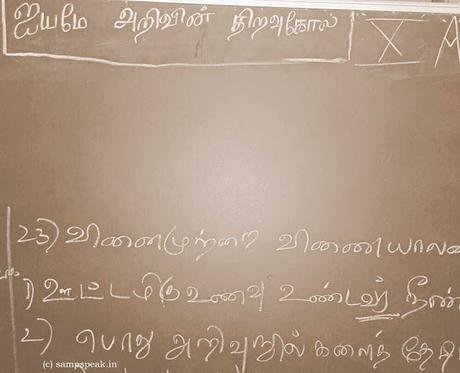 ஐயமே அறிவின் திறவுகோல் X A
23) வினைமுற்றை
1) ஊட்டமிகு உணவு உண்டவர்
2) பொது அறிவு நூல்களைத்
(c) sampspeak.in